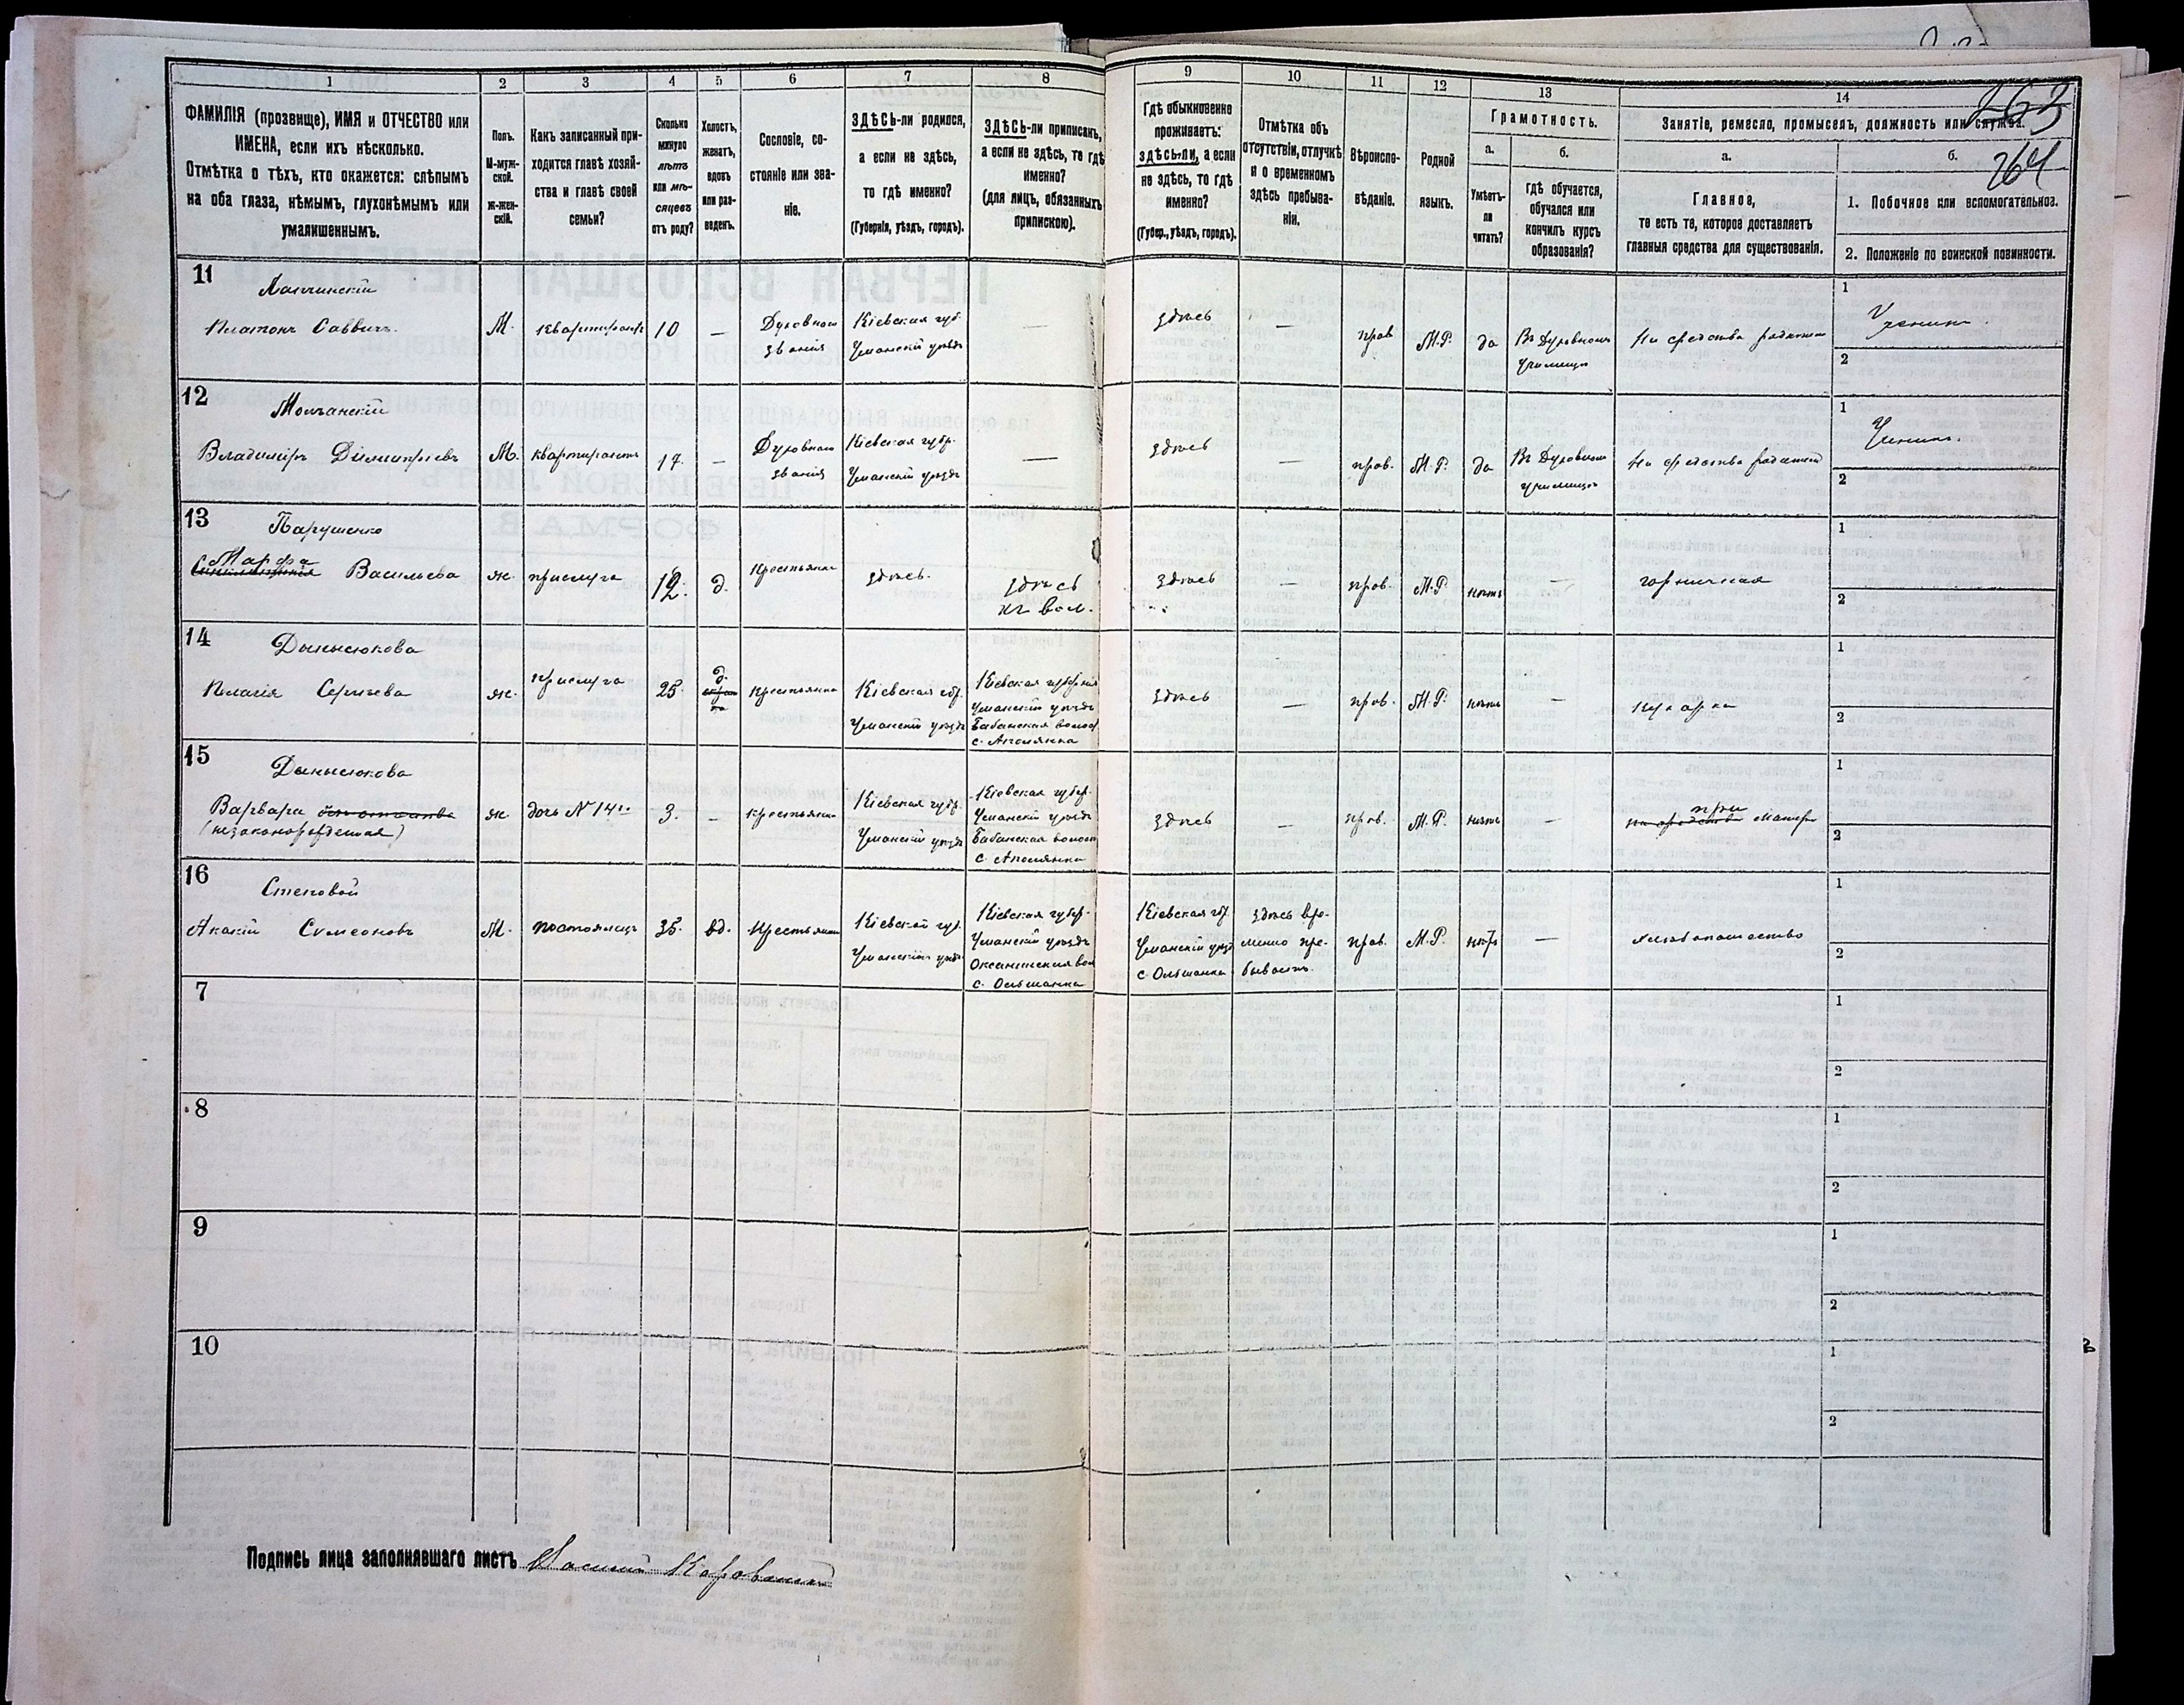 263
264
1
2
3
4
5
6
7
8
9
10
11
12
13
14
ФАМИЛІЯ (прозвище), ИМЯ и ОТЧЕСТВО или
ИМЕНА, если ихъ нѣсколько.
Отмѣтка о тѣхъ, кто окажется: слѣпымъ
на оба глаза, нѣмымъ, глухонѣмымъ или
умалишеннымъ.
Полъ.
М-муж-
ской.
Ж-жен-
скій.
Какъ записанный при-
ходится главѣ хозяй-
ства и главѣ своей
семьи?
Сколько
минуло
лѣтъ
или мѣ-
сяцевъ
отъ роду?
Холостъ,
женатъ,
вдовъ
или раз-
веденъ.
Сословіе, со-
стояніе или зва-
ніе.
ЗДѢСЬ-ли родился,
а если не здѣсь,
то гдѣ именно?
(Губернія, уѣздъ, городъ).
ЗДѢСЬ-ли приписанъ,
а если не здѣсь, то гдѣ
именно?
(для лицъ, обязанныхъ
припискою).
Гдѣ обыкновенно
проживаетъ:
здѣсь-ли, а если
не здѣсь, то гдѣ
именно?
(Губер., уѣздъ, городъ).
Отмѣтка объ
отсутствіи, отлучкѣ
и о временномъ
здѣсь пребыва-
ніи.
Вѣроиспо-
вѣданіе.
Родной
языкъ.
Грамотность.
а.
Умѣетъ-
ли
читать?
б.
гдѣ обучается,
обучался или
кончилъ курсъ
образованія?
Занятіе, ремесло, промыселъ, должность или служба.
а.
Главное,
то есть то, которое доставляетъ
главныя средства для существованія.
б.
1. Побочное или вспомогательное.
2. Положеніе по воинской повинности.
11
Платонъ Саввичъ
М.
квартирант
10
—
Духовнаго
званія
Кіевская губ.
Уманскій уѣздъ
—
здѣсь
—
прав
М.Р.
да
Въ Духовномъ
училищѣ
На средства родителей
1
Ученикъ.
2
12
Молчанскій
Владиміръ Димитріевъ
М.
квартирантъ
—
Духовнаго
званія
Кіевская губер.
Уманскій уѣздъ
—
здѣсь
—
прав.
М.Р.
да
Въ Духовномъ
училищѣ
На средства родителей
1
Ученикъ.
2
13
Парушенко
Марфа
Васильева
ж.
прислуга
12.
д.
крестьянка
здѣсь.
здѣсь
къ вол.
здѣсь
—
прав.
М.Р.
нѣтъ
—
горничная
1
2
14
Денысюкова
Пелагія Сергѣева
ж.
прислуга
25.
д.
крестьянка
Кіевская губ.
Уманскій уѣздъ
Кіевская губернія
Уманскій уѣздъ
Бабанская волос.
с. Аполянка
здѣсь
—
прав.
М.Р.
нѣтъ
—
кухарка
1
2
15
Денысюкова
Варвара безъ отчества
(незаконорожденная)
ж.
дочь №14го
3.
-
крестьянка
Кіевская губер.
Уманскій уѣздъ
Кіевская губер.
Уманскій уѣздъ
Бабанская волост
с. Аполянка
здѣсь
—
прав.
М.Р.
нѣтъ
—
при
на средства матери
1
2
16
Степовой
Акакій Симеоновъ
М.
постоялецъ
35.
вд.
крестьянинъ
Кіевской губ.
Уманскій уѣздъ
Кіевская губер.
Уманскій уѣздъ
Оксанинская вол
с. Ольшанка
Кіевская губ.
Уманскій уѣзд
с Ольшанка
здѣсь вре-
менно пре-
бываетъ.
прав.
М.Р.
нѣтъ
—
хлѣбопашество
1
2
7
1
2
8
1
2
9
1
2
10
1
2
Подпись лица заполнявшаго листъ